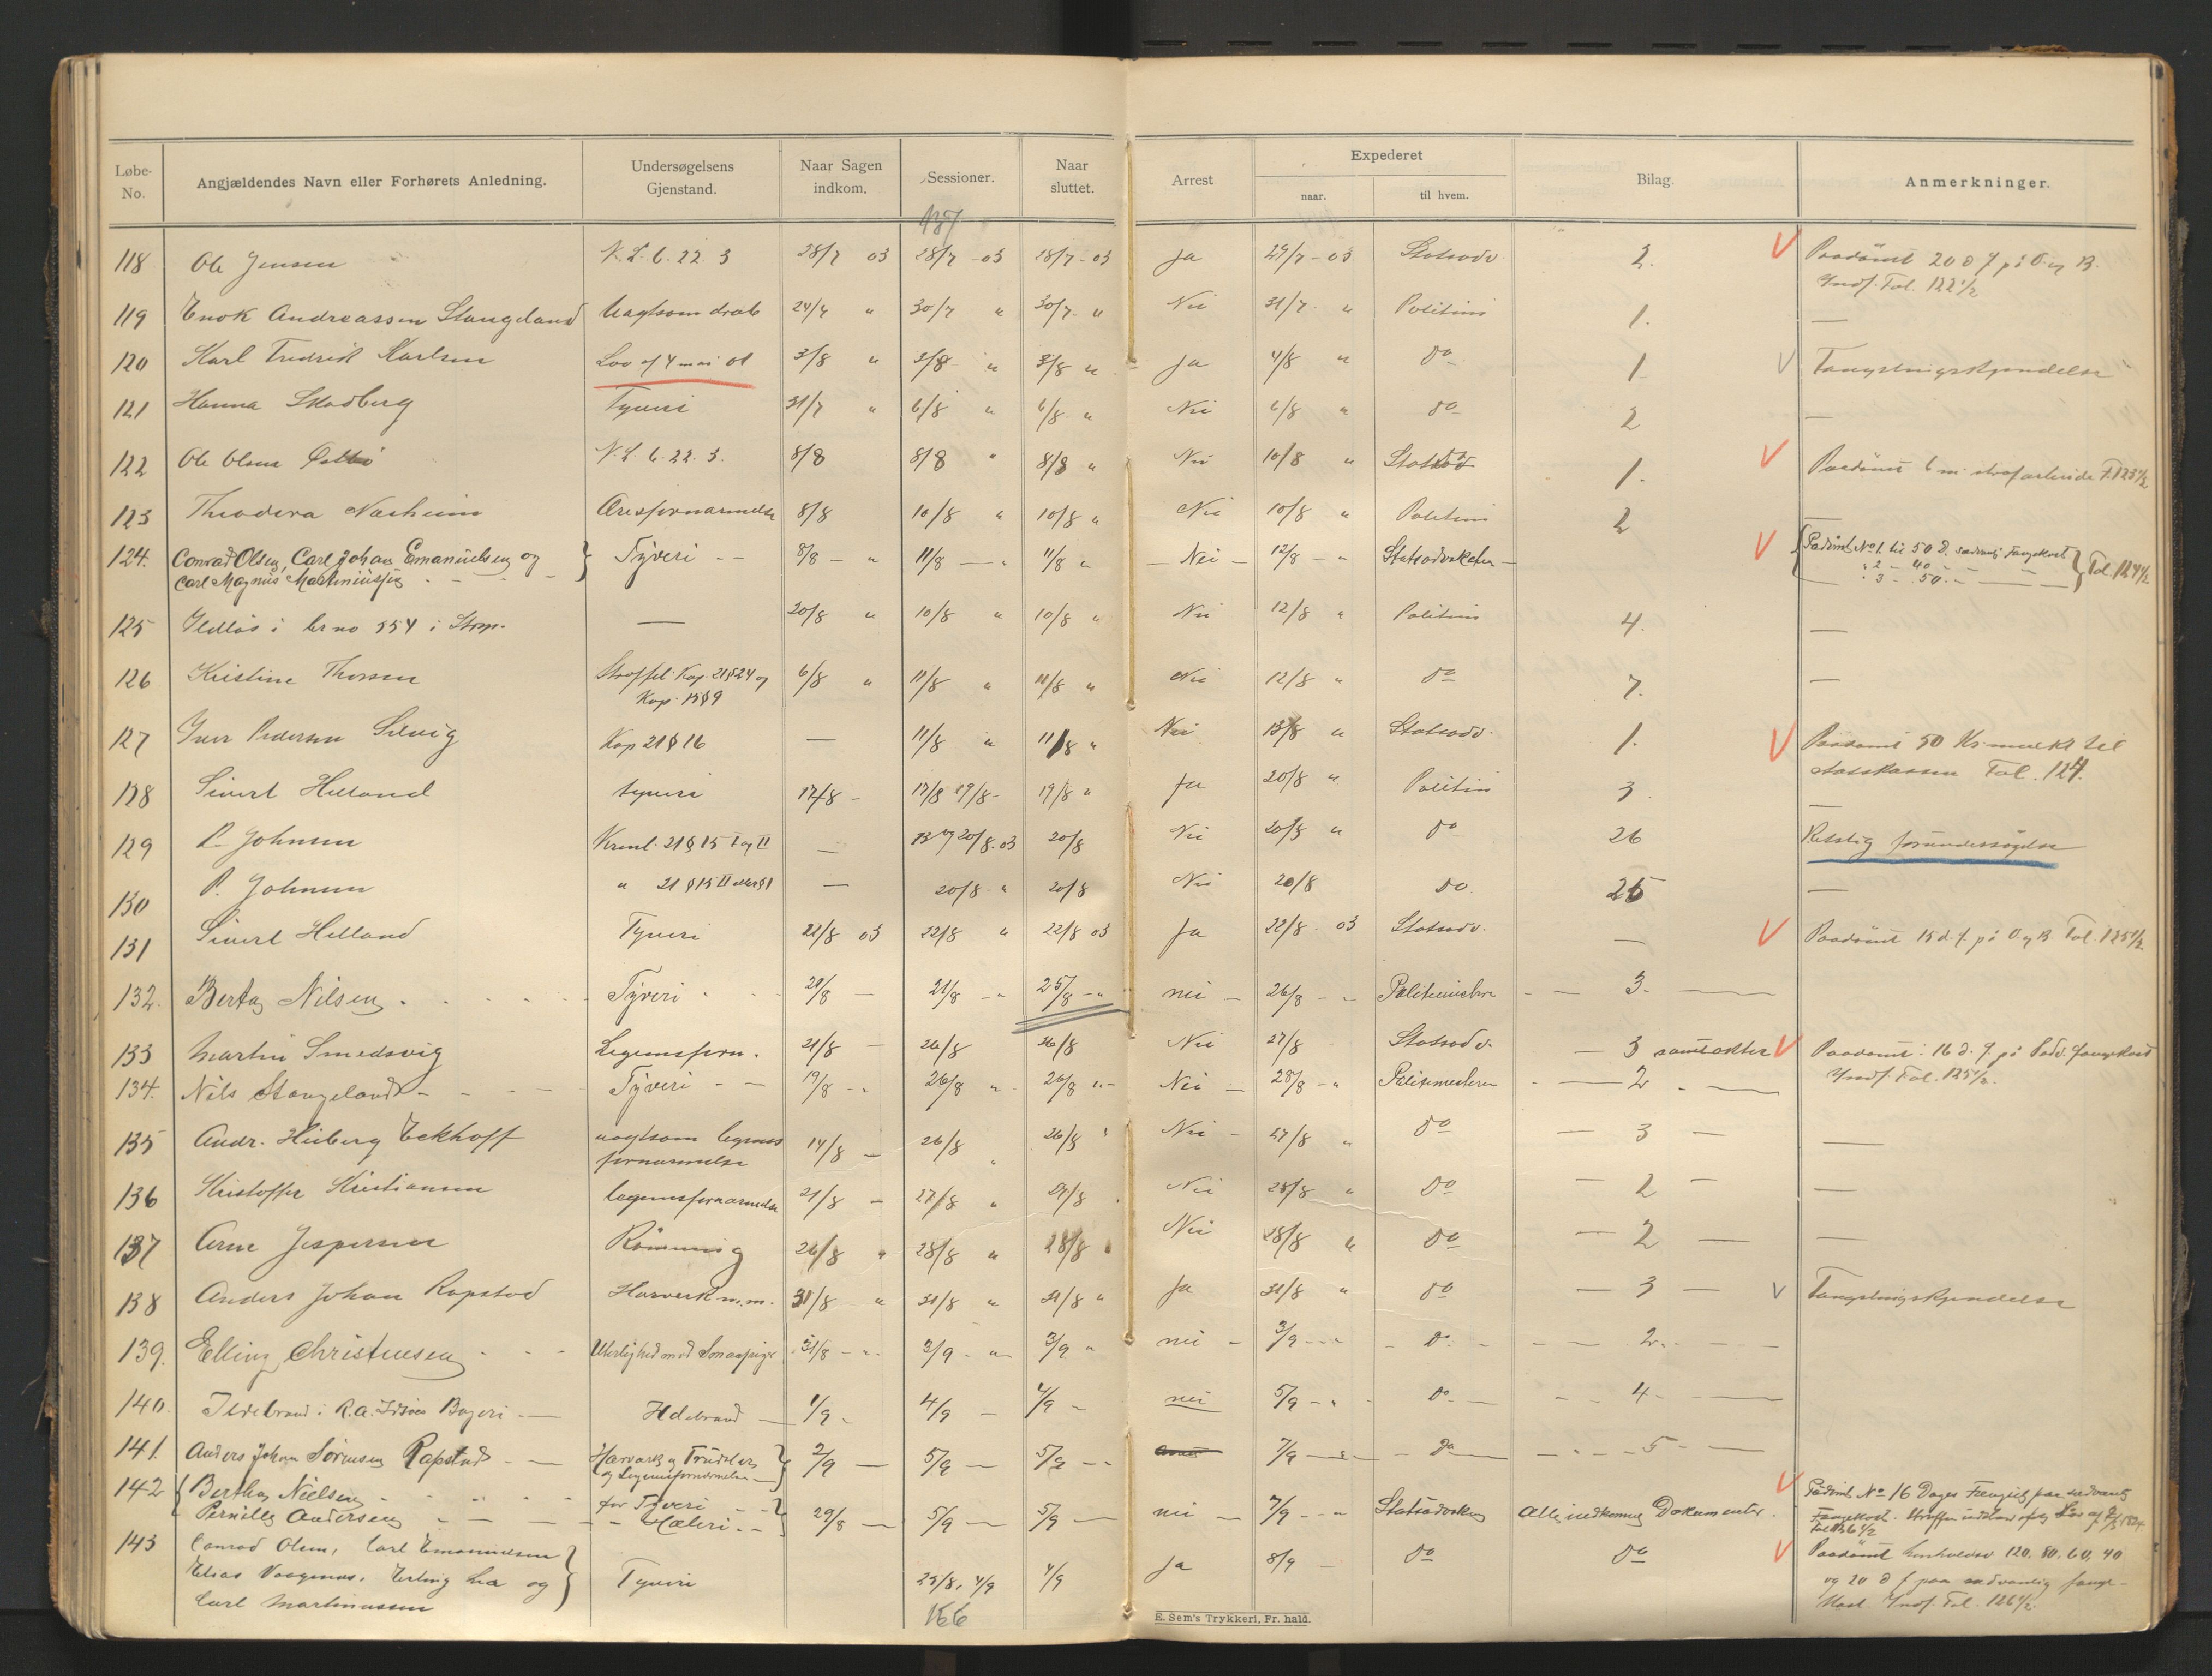 Løbe-No. Angjældendes Navn eller Forhørets Anledning. Undersøgelsens Gjenstand. Naar Sagen indkom. Sessioner. Naar sluttet. Arrest Expederet naar. til hvem. Bilag. Anmerkninger.
137
118 Ole Jensen N. L. 6. 22. 3 28/7 03 28/7 - 03 28/7 - 03 Ja 29/7 - 03 Statsadv. 2. V Paadömt 20 d f på V. og B.
Indf. Fol. 122 1/2
119 Enok Andreassen Stangeland Uagtsom drab 24/7 " 30/7 " 30/7 " Nei 31/7 " Politiet 1. —
120 Karl Fredrik Karlsen Lov af 4 mai 01 3/8 " 3/8 " 3/8 " Ja 4/8 " do 1 V Fængslingskjendelse
121 Hanna Skadberg Tyveri 31/7 " 6/8 " 6/8 " Nei 6/8 " do 2 —
122 Ole Olsen N. L. 6. 22. 3. 8/8 8/8 " 8/8 " Nei 10/8 " 1. V Paadömt 6 m. strafarbeide F. 123 1/2
123 Theodora Næsheim Æresfornærmelse 8/8 10/8 " 10/8 " Nei 10/8 " Politiet 2
124. Conrad Olsen, Carl Johan Emanuelsen og } Tyveri - - 8/8 - " 11/8 - " 11/8 " - Nei - 12/8 - " Statsadvokaten - V { Pådömt No 1 til 50 d. sædvanlig Fangekost } Fol. 124 1/2
Carl Magnus Martiniussen " 2 - 40 -
" 3 - 50 -
125 Ildløs i br no 554 i Strp. — 20/8 " 10/8 " 10/8 " Nei 12/8 " Politiet 4. —
126 Kristine Thorsen Straffel. Kap. 21 § 24 og 6/8 " 11/8 " 11/8 " Nei 12/8 " do 7. —
Kap. 15 § 9
127 Iver Pedersen Kap 21 § 16 — 11/8 " 11/8 " Nei 13/8 " Statsadv. 1. V Paadömt 50 Kr. mulkt til
statskassen Fol. 124.
128 Sivert Helland tyveri 17/8 - 17/8 19/8 - 19/8 " Ja 20/8 " Politiet 3. —
129 P. Johnsen Kriml. 21 § 15 I og II — 13 og 20/8. 03 20/8 Nei 20/8 " do 26 Retslig forundersøgelse
130 P. Johnsen " 21 § 15 II — 20/8 " 20/8 Nei 20/8 do. 25 —
131 Sivert Helland Tyveri 22/8 03 22/8 " 22/8 03 Ja 22/8 03 Statsadv. — V Paadömt 15 d. f. på V. og B. Fol. 125 1/2
132. Berta Nilsen Tyveri 21/8 — 21/8 - " 25/8 - " nei - 26/8 - - Politimesteren - — 3. —
133 Martin Smedsvig Legemsforn. 21/8 — 26/8 26/8 Nei 27/8 Statsadv. — 3 samt akter V Paadömt: 16 d. f. på sædv. fangekost
Indf. Fol. 125 1/2.
134. Nils Stangeland - Tyveri - - 19/8 - " 26/8 " 26/8 " - Nei - 28/8 - " Politimesteren - — 2 —
135 Andr. Heiberg Eckhoff uagtsom legems 14/8 — 26/8 " 26/8 " Nei - 27/8 " do — 3 — —
fornærmelse
136 Kristoffer Kristiansen legemsfornærmelse 21/8 - 27/8 " 27/8 Nei 28/8 " do — 2 — —
137 Arne Jespersen Römning 26/8 " 28/8 " 28/8 " Nei 28/8 " do — 2 — —
138 Anders Johan Rapstad Hærverk m.m. 31/8 " 31/8 " 31/8 " Ja 31/8 " do — 3 — V Fængslingskjendelse
139. Elling Christensen Uterlighed mod Smaapiger 31/8 - " 3/9 - " 3/9 " nei - 3/9 - - - do - - 2. -
140. Ildebrand i R. A. Bageri - Ildebrand 1/9 - 4/9 - 4/9 - nei 5/9 - " do - 4 —
141. Anders Johan Sörensen Rapstad - Hærværk, Trudsler } 2/9 — 5/9 — 5/9 - - 7/9 — - do - 5 —
og Legemsfornærmelse
142 { Bertha Nielsen for Tyveri } 29/8 — 5/9 — 5/9 — nei - 7/9 - - " Statsadvokaten Alle indkomne Dokumenter. V Pådömt No 1 6 Dages Fængsel paa sædvanlig
Pernille Andersen - - - " - Hæleri - - Fangekost.
143 Conrad Olsen, Carl Emanuelsen } Tyveri 25/8, 4/9 4/9 Ja 8/9 - do do V Paadömt henholdsv 120, 80, 60, 40
Elias Vaagenes, Erling Lea og og 20 d f paa sædvanlig fange-
Carl Martinussen kost. Indf. Fol. 126 1/2
166
E. Sem's Trykkeri, Fr. hald.